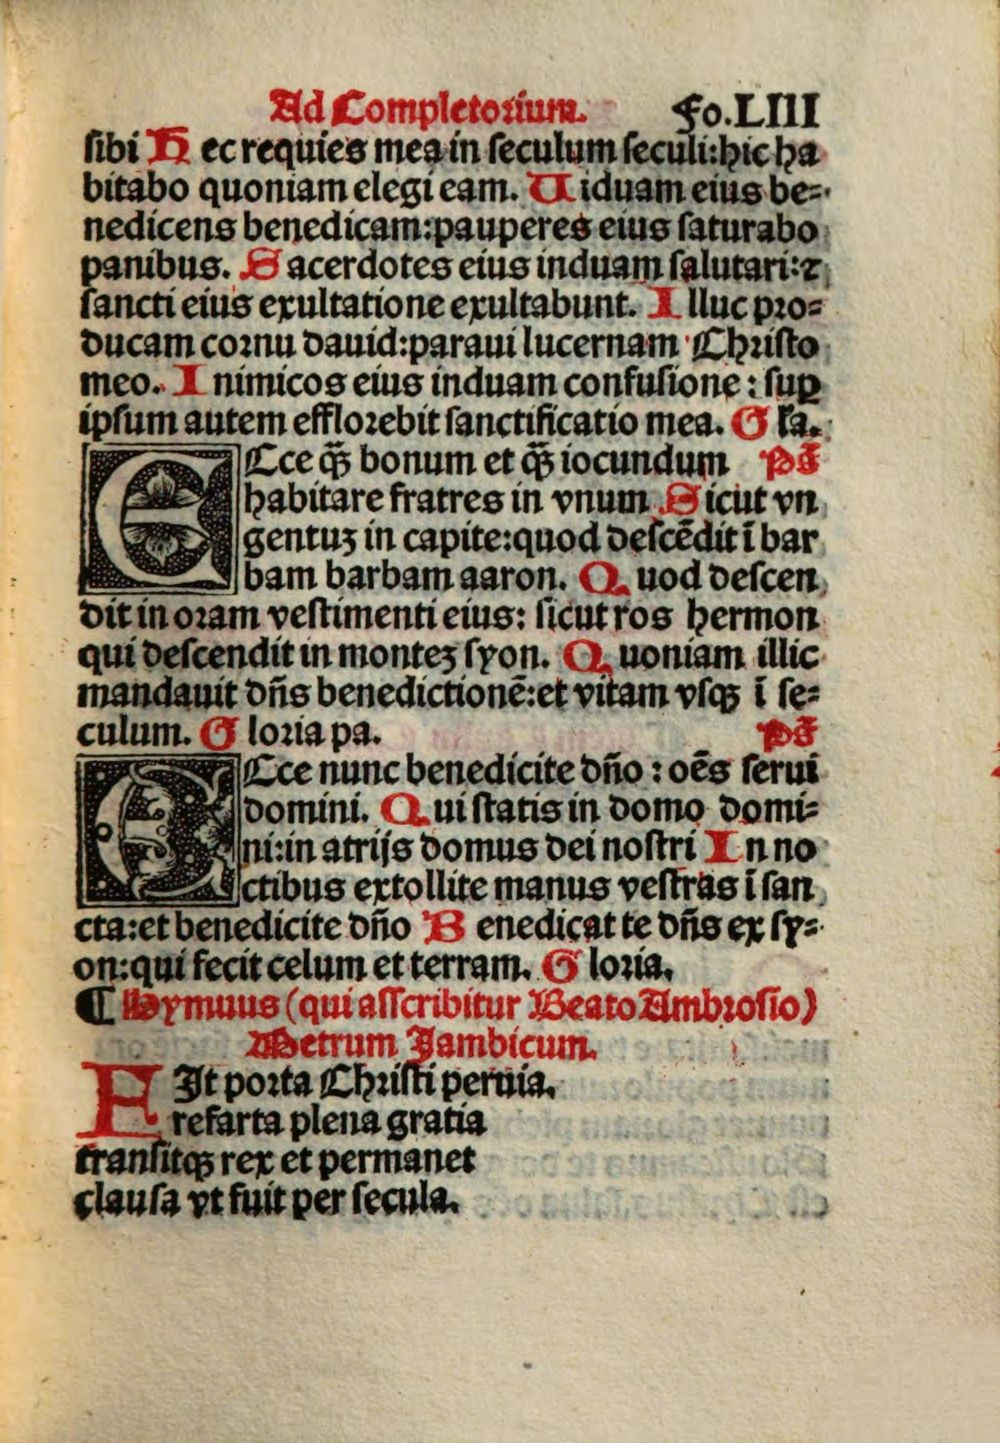 Ad Completorium. Fo.LIII
sibi H ec requies mea in seculum seculi:hic ha
bitabo quoniam elegi eam. U iduam eius be=
nedicens benedicam:pauperes eius saturabo
panibus. S acerdotes eius induam salutari:⁊
sancti eius exultatione exultabunt. I lluc pro=
ducam cornu dauid:paraui lucernam Christo
meo. I nimicos eius induam confusione : suꝑ
ipsum autem efflorebit sanctificatio mea. G ła.
ECce qꝫ̃ bonum et qꝫ̃ iocundum ps̃
habitare fratres in vnum S icut vn
gentuꝫ in capite:quod descẽdit ĩ bar
bam barbam aaron. Q uod descen
dit in oram vestimenti eius: sicut ros hermon
qui descendit in monteꝫ syon. Q uoniam illic
mandauit dñs benedictionẽ:et vitam vsqꝫ ĩ se=
culum. G loria pa. ps̃
ECce nunc benedicite dño : oẽs serui
domini. Q ui statis in domo domi=
ni:in atrijs domus dei nostri I n no
ctibus extollite manus vestras ĩ san
cta:et benedicite dño B enedicat te dñs ex sy=
on:qui fecit celum et terram. G loria.
¶ Hymuus (qui asscribitur Beato Ambrosio)
Metrum Jambicum.
FIt porta Christi peruia.
refarta plena gratia
transitqꝫ rex et permanet
clausa vt fuit per secula.